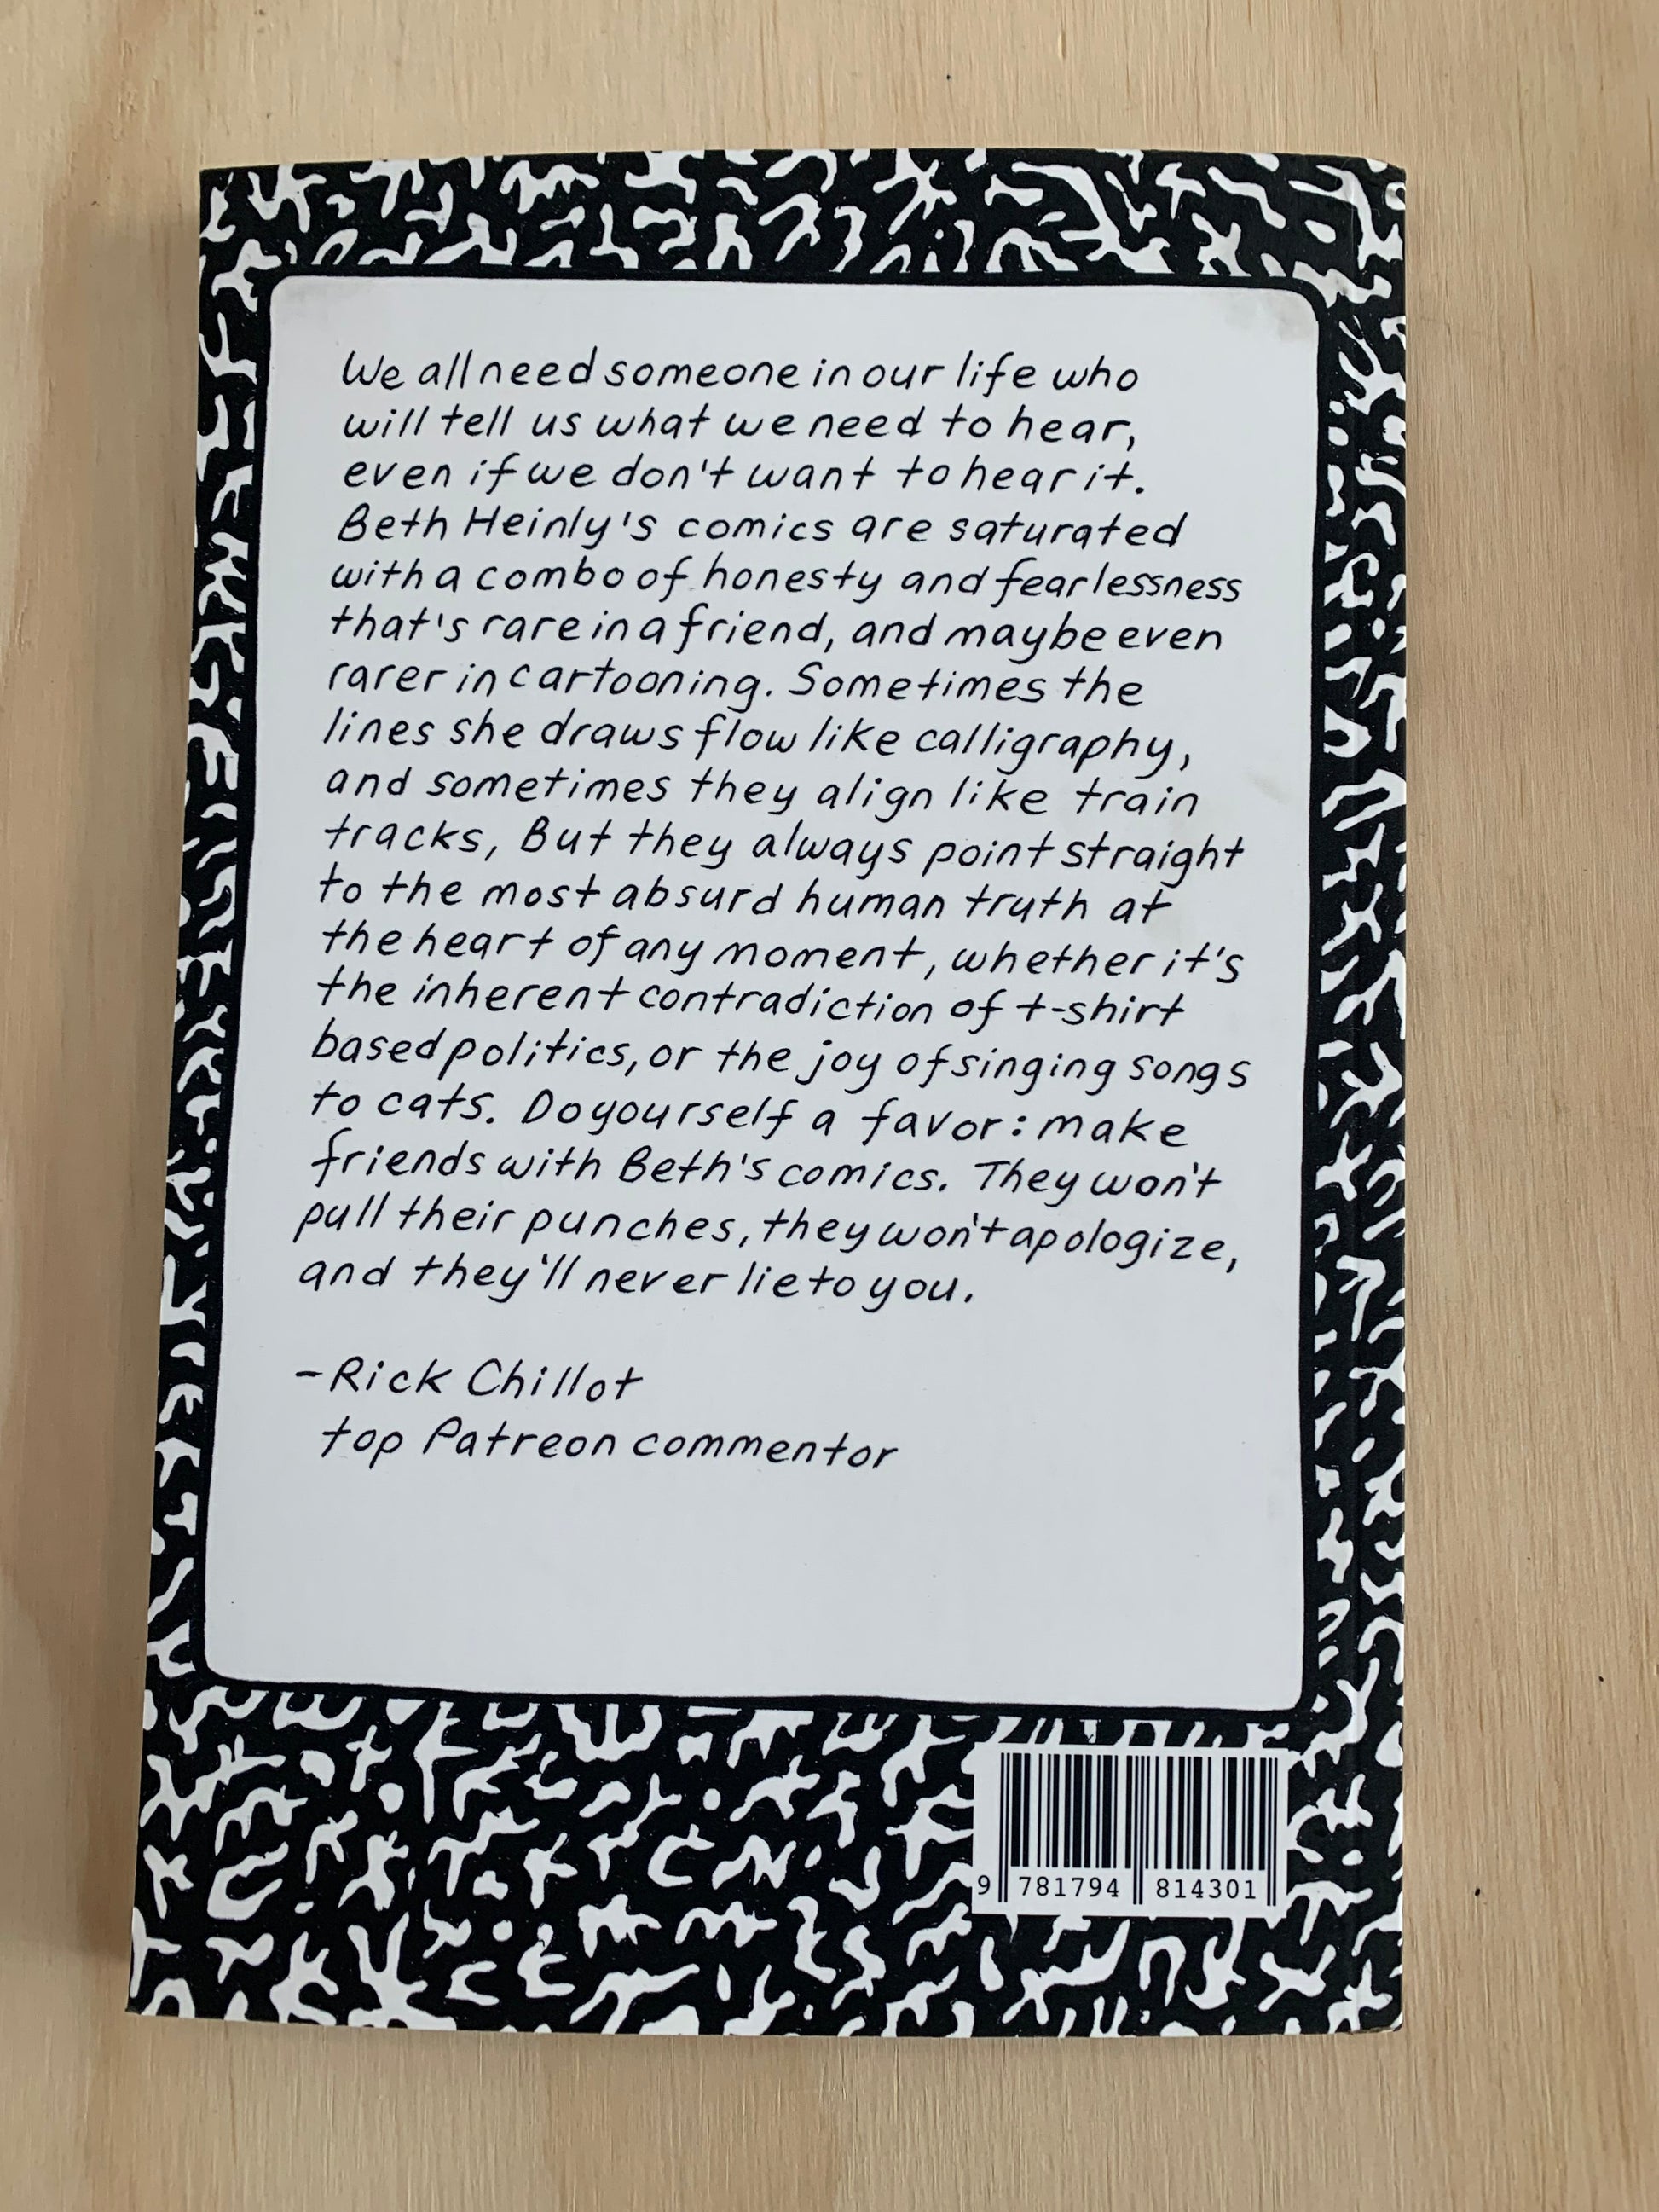 We all need someone in our life who
will tell us what we need to hear,
even if we don't want to hear it.
Beth Heinly's comics are saturated
with a combo of honesty and fearlessness
that's rare in a friend, and maybe even
rarer in cartooning. Sometimes the
lines she draws flow like calligraphy,
and sometimes they align like train
tracks, But they always point straight
to the most absurd human truth at
the heart of any moment, whether it's
the inherent contradiction of t-shirt
based politics, or the joy of singing songs
to cats. Do yourself a favor: make
friends with Beth's comics. They won't
pull their punches, they won't apologize,
and they'll never lie to you.
-Rick Chillot
top Patreon commentor
9 781794 814301